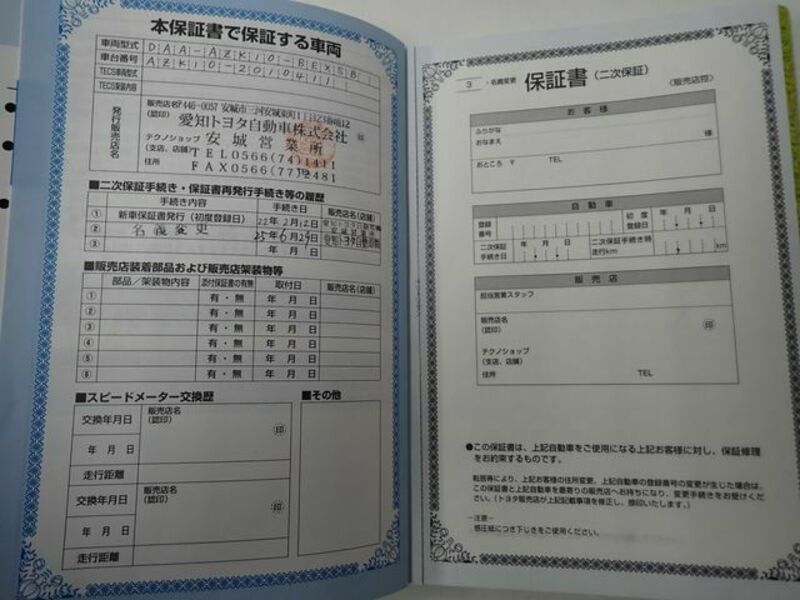 本保証書で保証する車両
車両型式 DAA-AZK10-BEXSB
車台番号 AZK10-2010411
TECS車両型式
TECS架装内容
発行販売店名
販売店名 〒446-0057 安城市三河安城東町1丁目23番地12
(認印) 愛知トヨタ自動車株式会社 印
テクノショップ 安城営業所
(支店、店舗) TEL0566(74)1411
住所 FAX0566(77)2481
■二次保証手続き・保証書再発行手続き等の履歴
手続き内容 手続き日 販売店名(店舗)
① 新車保証書発行(初度登録日) 22年2月12日
② 名義変更 25年6月29日
③ 年 月 日
■販売店装着部品および販売店架装物等
部品/架装物内容 添付保証書の有無 取付日 販売店名(店舗)
① 有・無 年 月 日
② 有・無 年 月 日
③ 有・無 年 月 日
④ 有・無 年 月 日
⑤ 有・無 年 月 日
⑥ 有・無 年 月 日
■スピードメーター交換歴
交換年月日 販売店名
(認印)
印
年 月 日
走行距離
交換年月日 販売店名
(認印)
印
年 月 日
走行距離
■その他
3 ・名義変更 保証書(二次保証)
(販売店控)
お客様
ふりがな
おなまえ 様
おところ 〒 TEL
自動車
登録番号 初度登録日 年 月 日
二次保証手続き日 年 月 日 二次保証手続き時走行km km
販売店
担当営業スタッフ
販売店名
(認印) 印
テクノショップ
(支店、店舗)
住所 TEL
●この保証書は、上記自動車をご使用になる上記お客様に対し、保証修理
をお約束するものです。
転居等により、上記お客様の住所変更、上記自動車の登録番号の変更が生じた場合は、
この保証書と上記自動車を最寄りの販売店へお持ちになり、変更手続きをお受けくだ
さい。(トヨタ販売店が上記記載事項を修正し、捺印いたします。)
―注意―
感圧紙につき下じきをご使用ください。